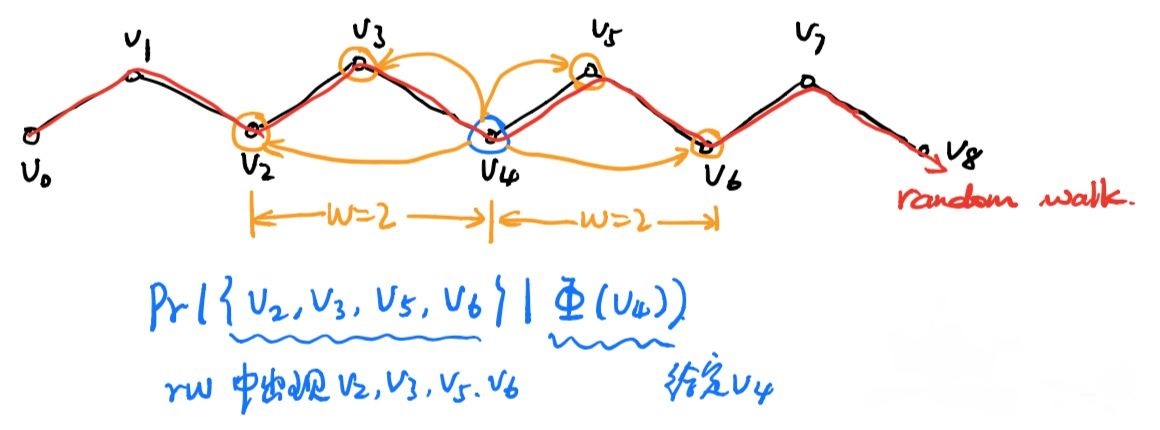 V1 V3 V5 V7
V0 V2 V4 V6 V8
random walk.
W=2 W=2
Pr({V2, V3, V5, V6} | Φ(V4))
rw 中出现 V2, V3, V5. V6 给定 V4